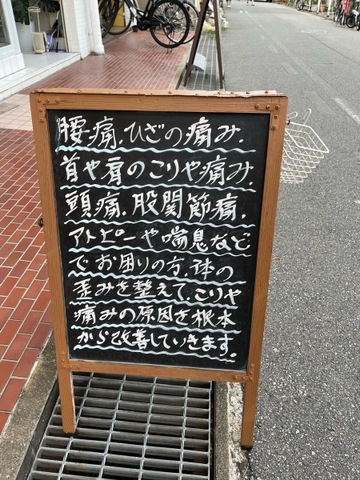 腰痛.ひざの痛み.
首や肩のこりや痛み.
頭痛.股関節痛.
アトピーや喘息など
でお困りの方.体の
歪みを整えて.こりや
痛みの原因を根本
から改善していきます。